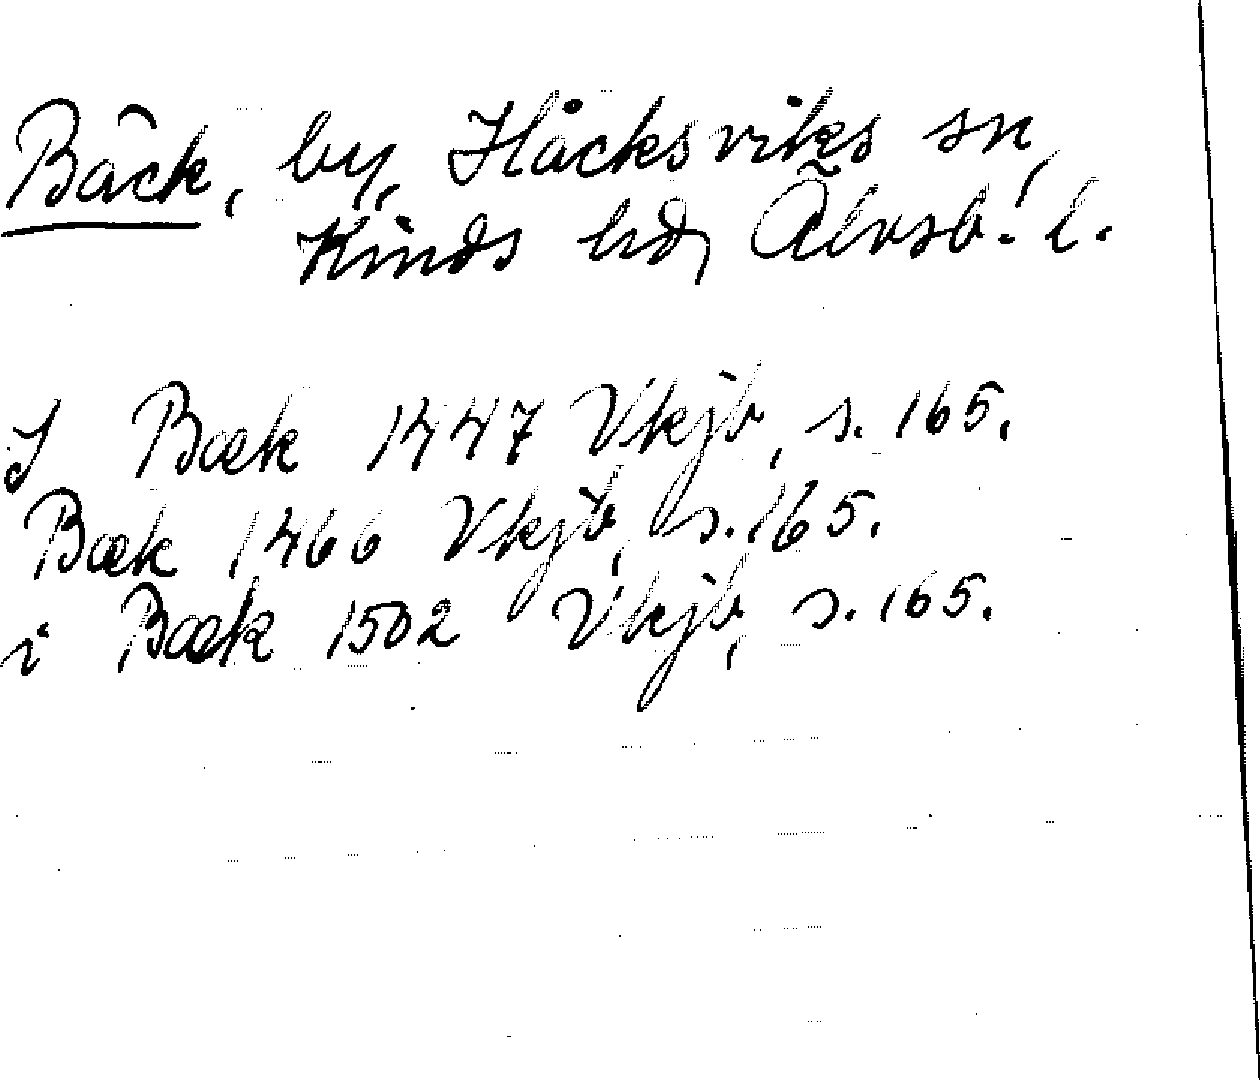 Bäck, by, Håcksviks sn,
Kinds hd, Älvsb. l.
J Bæk 1447 Vkjb, s. 165.
Bæk 1466 Vkjb, s. 165.
i Bæk 1502 Vkjb, s. 165.